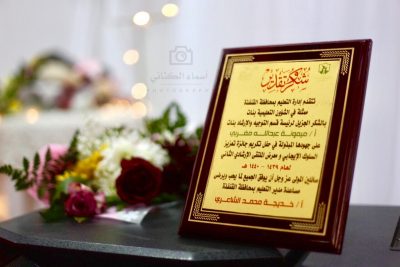 أسماء الكناني
شكر وتقدير
تتقدم إدارة التعليم بمحافظة القنفذة
ممثلة في الشؤون التعليمية بنات
بالشكر الجزيل لرئيسة قسم التوجيه والإرشاد بنات
أ / ميمونة عبدالله مغربي
على جهودها المبذولة في حفل تكريم جائزة تعزيز
السلوك الإيجابي و معرض الملتقى الإرشادي الثاني
لعام ١٤٣٩ - ١٤٤٠ هـ
سائلين المولى عز وجل أن يوفق الجميع لما يحب ويرضى
مساعدة مدير التعليم بمحافظة القنفذة
أ / خديجة محمد الشاعري